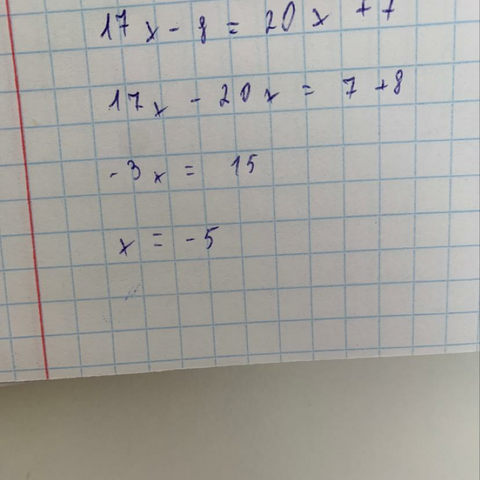 17x - 8 = 20x + 7
17x - 20x = 7 + 8
-3x = 15
x = -5